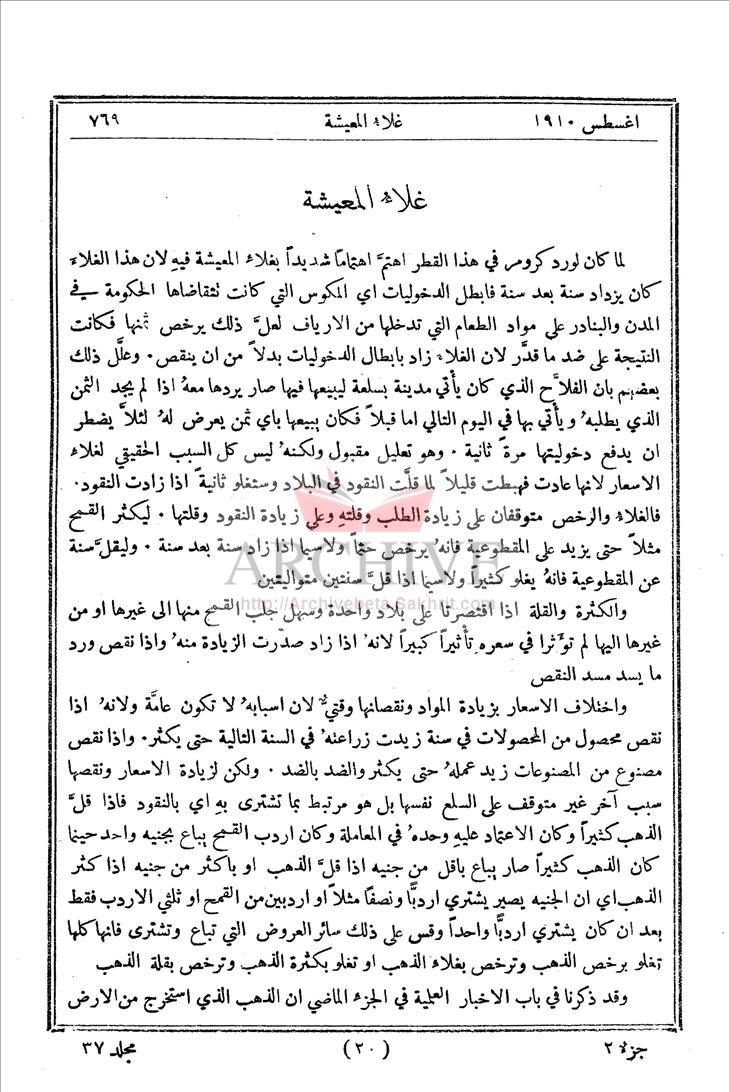 اغسطس ١٩١٠ غلاء المعيشة ٧٦٩
غلاء المعيشة
لما كان لورد كرومر في هذا القطر اهتمَّ اهتماماً شديداً بغلاء المعيشة فيهِ لان هذا الغلاء
كان يزداد سنة بعد سنة فابطل الدخوليات اي المكوس التي كانت تتقاضاها الحكومة في
المدن والبنادر على مواد الطعام التي تدخلها من الارياف لعلَّ ذلك يرخص ثمنها فكانت
النتيجة على ضد ما قدَّر لان الغلاء زاد بابطال الدخوليات بدلاً من ان ينقص . وعلَّل ذلك
بعضهم بان الفلاَّح الذي كان يأتي مدينة بسلعة ليبيعها فيها صار يردها معهُ اذا لم يجد الثمن
الذي يطلبهُ ويأتي بها في اليوم التالي اما قبلاً فكان يبيعها باي ثمن يعرض لهُ لئلاَّ يضطر
ان يدفع دخوليتها مرةً ثانية . وهو تعليل مقبول ولكنهُ ليس كل السبب الحقيقي لغلاء
الاسعار لانها عادت فهبطت قليلاً لما قلَّت النقود في البلاد وستغلو ثانيةً اذا زادت النقود .
فالغلاء والرخص متوقفان على زيادة الطلب وقلتهِ وعلى زيادة النقود وقلتها . ليكثر القمح
مثلاً حتى يزيد على المقطوعية فانهُ يرخص حتماً ولاسيما اذا زاد سنة بعد سنة . وليقلَّ سنة
عن المقطوعية فانهُ يغلو كثيراً ولاسيما اذا قلَّ سنتين متواليتين
ARCHIVE
http://Archivebeta.Sakhrit.com
والكثرة والقلة اذا اقتصرتا على بلاد واحدة وسهل جلب القمح منها الى غيرها او من
غيرها اليها لم تؤثرا في سعره تأثيراً كبيراً لانهُ اذا زاد صدّرت الزيادة منهُ واذا نقص ورد
ما يسد مسد النقص
واختلاف الاسعار بزيادة المواد ونقصانها وقتيٌّ لان اسبابهُ لا تكون عامَّة ولانهُ اذا
نقص محصول من المحصولات في سنة زيدت زراعتهُ في السنة التالية حتى يكثر . واذا نقص
مصنوع من المصنوعات زيد عملهُ حتى يكثر والضد بالضد . ولكن لزيادة الاسعار ونقصها
سبب آخر غير متوقف على السلع نفسها بل هو مرتبط بما تشترى بهِ اي بالنقود فاذا قلَّ
الذهب كثيراً وكان الاعتماد عليهِ وحدهُ في المعاملة وكان اردب القمح يباع بجنيه واحد حينما
كان الذهب كثيراً صار يباع باقل من جنيه اذا قلَّ الذهب او باكثر من جنيه اذا كثر
الذهب اي ان الجنيه يصير يشتري اردبًّا ونصفاً مثلاً او اردبين من القمح او ثلثي الاردب فقط
بعد ان كان يشتري اردبًّا واحداً وقس على ذلك سائر العروض التي تباع وتشترى فانها كلها
تغلو برخص الذهب وترخص بغلاء الذهب او تغلو بكثرة الذهب وترخص بقلة الذهب
وقد ذكرنا في باب الاخبار العلمية في الجزء الماضي ان الذهب الذي استخرج من الارض
جزء ٢ (٢٠) مجلد ٣٧